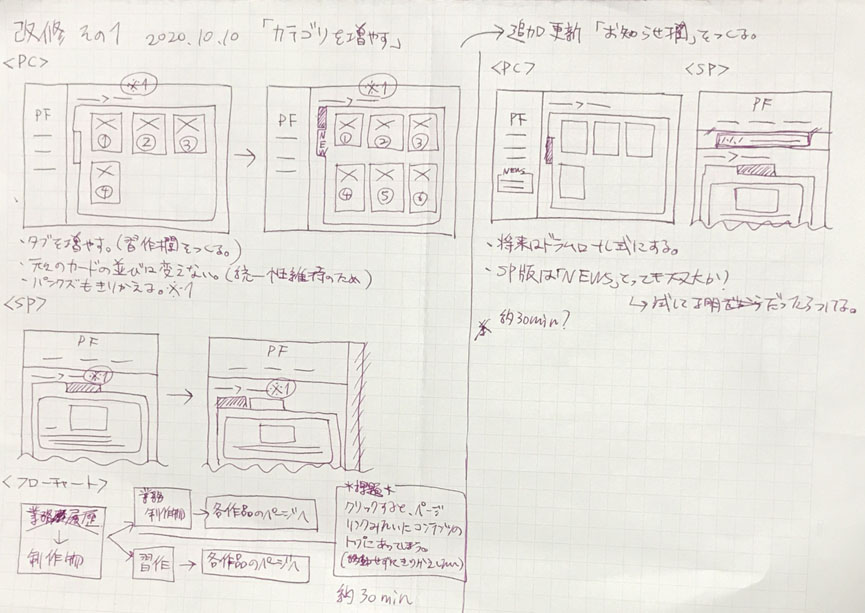 改修 その1 2020.10.10 「カテゴリを増やす」
<PC>
※1
PF
①
②
③
④
※1
PF
NEW
①
②
③
④
⑤
⑥
・タブを増やす。(習作欄をつくる。)
・元々のカードの並びは変えない。(統一性維持のため)
・パンクズもきりかえる。※1
<SP>
PF
※1
PF
※1
<フローチャート>
業務履歴
制作物
業務
制作物
各作品のページへ
習作
各作品のページへ
*課題*
クリックすると、ページ
リンクみたいにコンテンツの
トップにあってしまう。
約30min
追加更新 「お知らせ欄」をつくる。
<PC>
PF
NEWS
<SP>
PF
・将来はドラムロール式にする。
・SP版は「NEWS」とっても大丈夫か?
↳試して
だったらつける。
約30min?